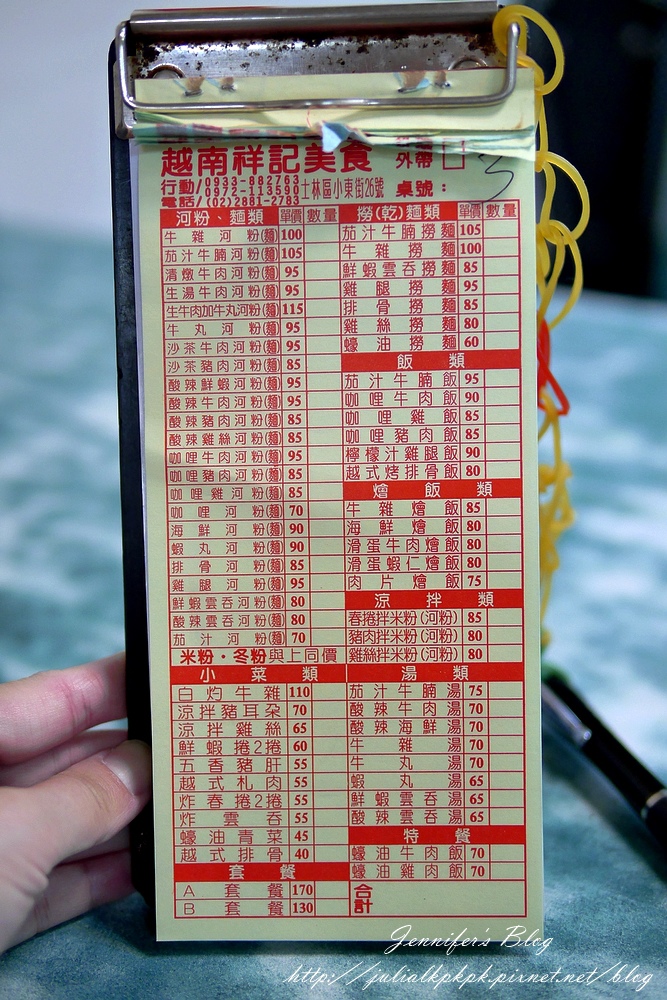 越南祥記美食
外帶 □
行動/0933-982763
0972-113590
電話/(02)2881-2783
士林區小東街26號
桌號: 3
河粉、麵類 單價 數量
牛雜河粉(麵) 100
茄汁牛腩河粉(麵) 105
清燉牛肉河粉(麵) 95
生湯牛肉河粉(麵) 95
生牛肉加牛丸河粉(麵) 115
牛丸河粉(麵) 95
沙茶牛肉河粉(麵) 95
沙茶豬肉河粉(麵) 85
酸辣鮮蝦河粉(麵) 95
酸辣牛肉河粉(麵) 95
酸辣豬肉河粉(麵) 85
酸辣雞絲河粉(麵) 85
咖哩牛肉河粉(麵) 95
咖哩豬肉河粉(麵) 85
咖哩雞河粉(麵) 85
咖哩河粉(麵) 70
海鮮河粉(麵) 90
蝦丸河粉(麵) 90
排骨河粉(麵) 85
雞腿河粉(麵) 95
鮮蝦雲吞河粉(麵) 80
酸辣雲吞河粉(麵) 80
茄汁河粉(麵) 70
米粉・冬粉與上同價
小菜類
白灼牛雜 110
涼拌豬耳朵 70
涼拌雞絲 65
鮮蝦捲2捲 60
五香豬肝 55
越式札肉 55
炸春捲2捲 55
炸雲吞 55
蠔油青菜 45
越式排骨 40
套餐
A套餐 170
B套餐 130
撈(乾)麵類 單價 數量
茄汁牛腩撈麵 105
牛雜撈麵 100
鮮蝦雲吞撈麵 85
雞腿撈麵 95
排骨撈麵 85
雞絲撈麵 80
蠔油撈麵 60
飯類
茄汁牛腩飯 95
咖哩牛肉飯 90
咖哩雞飯 85
咖哩豬肉飯 85
檸檬汁雞腿飯 90
越式烤排骨飯 80
燴飯類
牛雜燴飯 85
海鮮燴飯 80
滑蛋牛肉燴飯 80
滑蛋蝦仁燴飯 80
肉片燴飯 75
涼拌類
春捲拌米粉(河粉) 85
豬肉拌米粉(河粉) 80
雞絲拌米粉(河粉) 80
湯類
茄汁牛腩湯 75
酸辣牛肉湯 70
酸辣海鮮湯 70
牛雜湯 70
牛丸湯 70
蝦丸湯 65
鮮蝦雲吞湯 65
酸辣雲吞湯 65
特餐
蠔油牛肉飯 70
蠔油雞肉飯 70
合計
Jennifer's Blog
http://julialkpkpk.pixnet.net/blog